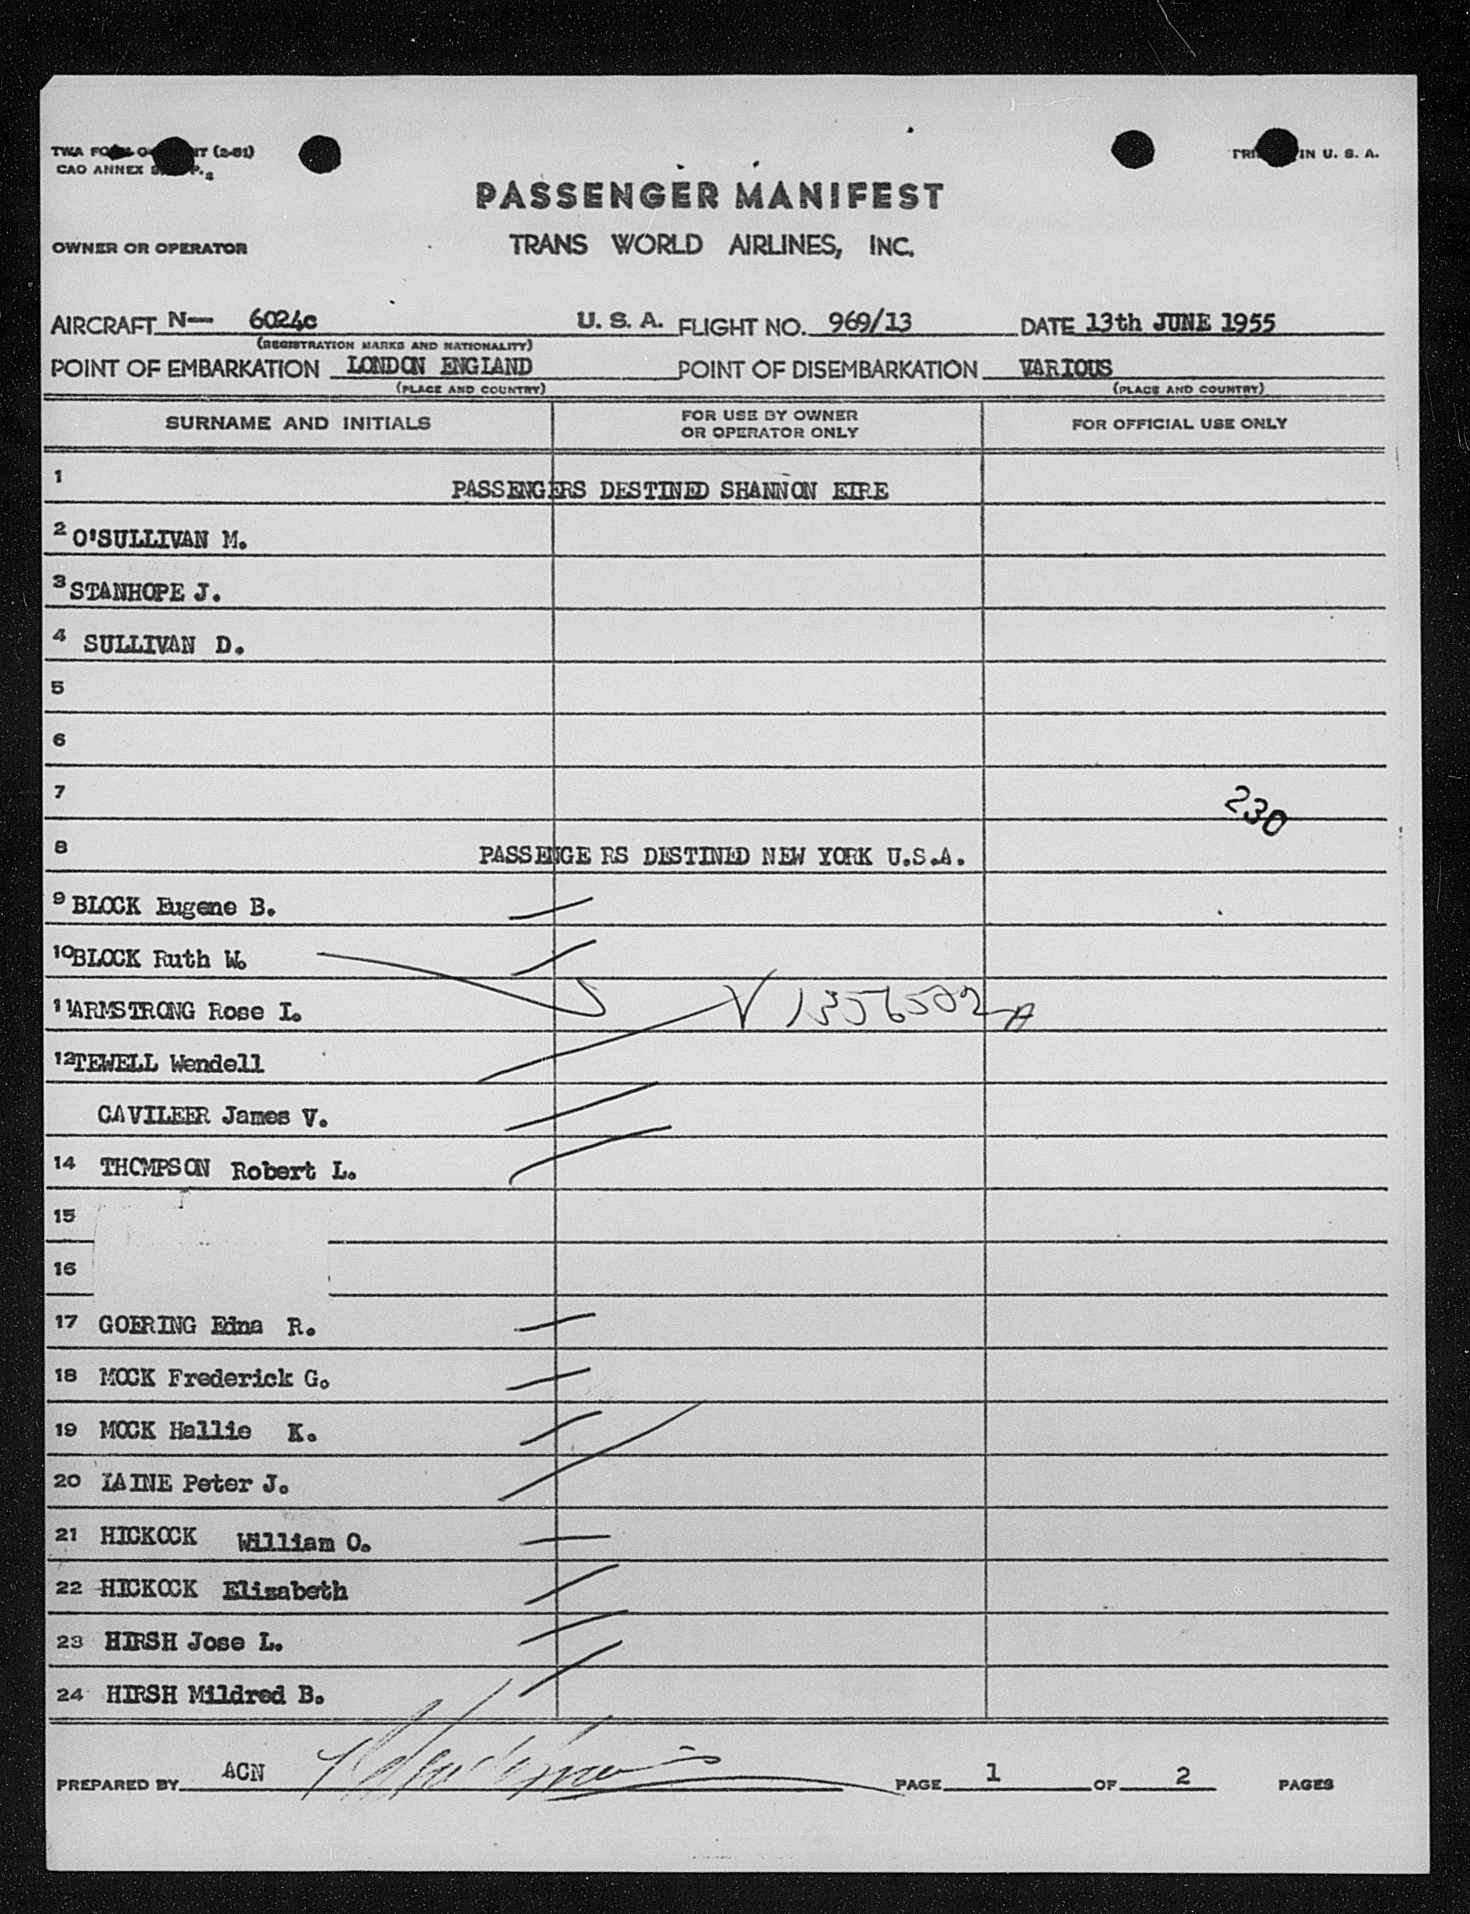 (2-51)
CAO ANNEX
IN U. S. A.
PASSENGER MANIFEST
OWNER OR OPERATOR TRANS WORLD AIRLINES, INC.
AIRCRAFT N— 6024c U. S. A. FLIGHT NO. 969/13 DATE 13th JUNE 1955
(REGISTRATION MARKS AND NATIONALITY)
POINT OF EMBARKATION LONDON ENGLAND POINT OF DISEMBARKATION VARIOUS
(PLACE AND COUNTRY) (PLACE AND COUNTRY)
SURNAME AND INITIALS FOR USE BY OWNER OR OPERATOR ONLY FOR OFFICIAL USE ONLY
1 PASSENGERS DESTINED SHANNON EIRE
2 O'SULLIVAN M.
3 STANHOPE J.
4 SULLIVAN D.
5
6
7 230
8 PASSENGE RS DESTINED NEW YORK U.S.A.
9 BLOCK Eugene B.
10 BLOCK Ruth W.
11 ARMSTRONG Rose I. V 1356592 A
12 TEWELL Wendell
CAVILEER James V.
14 THOMPSON Robert L.
15
16
17 GOERING Edna R.
18 MOCK Frederick G.
19 MOCK Hallie K.
20 LAINE Peter J.
21 HICKOCK William O.
22 HICKOCK Elizabeth
23 HIRSH Jose L.
24 HIRSH Mildred B.
PREPARED BY ACN PAGE 1 OF 2 PAGES